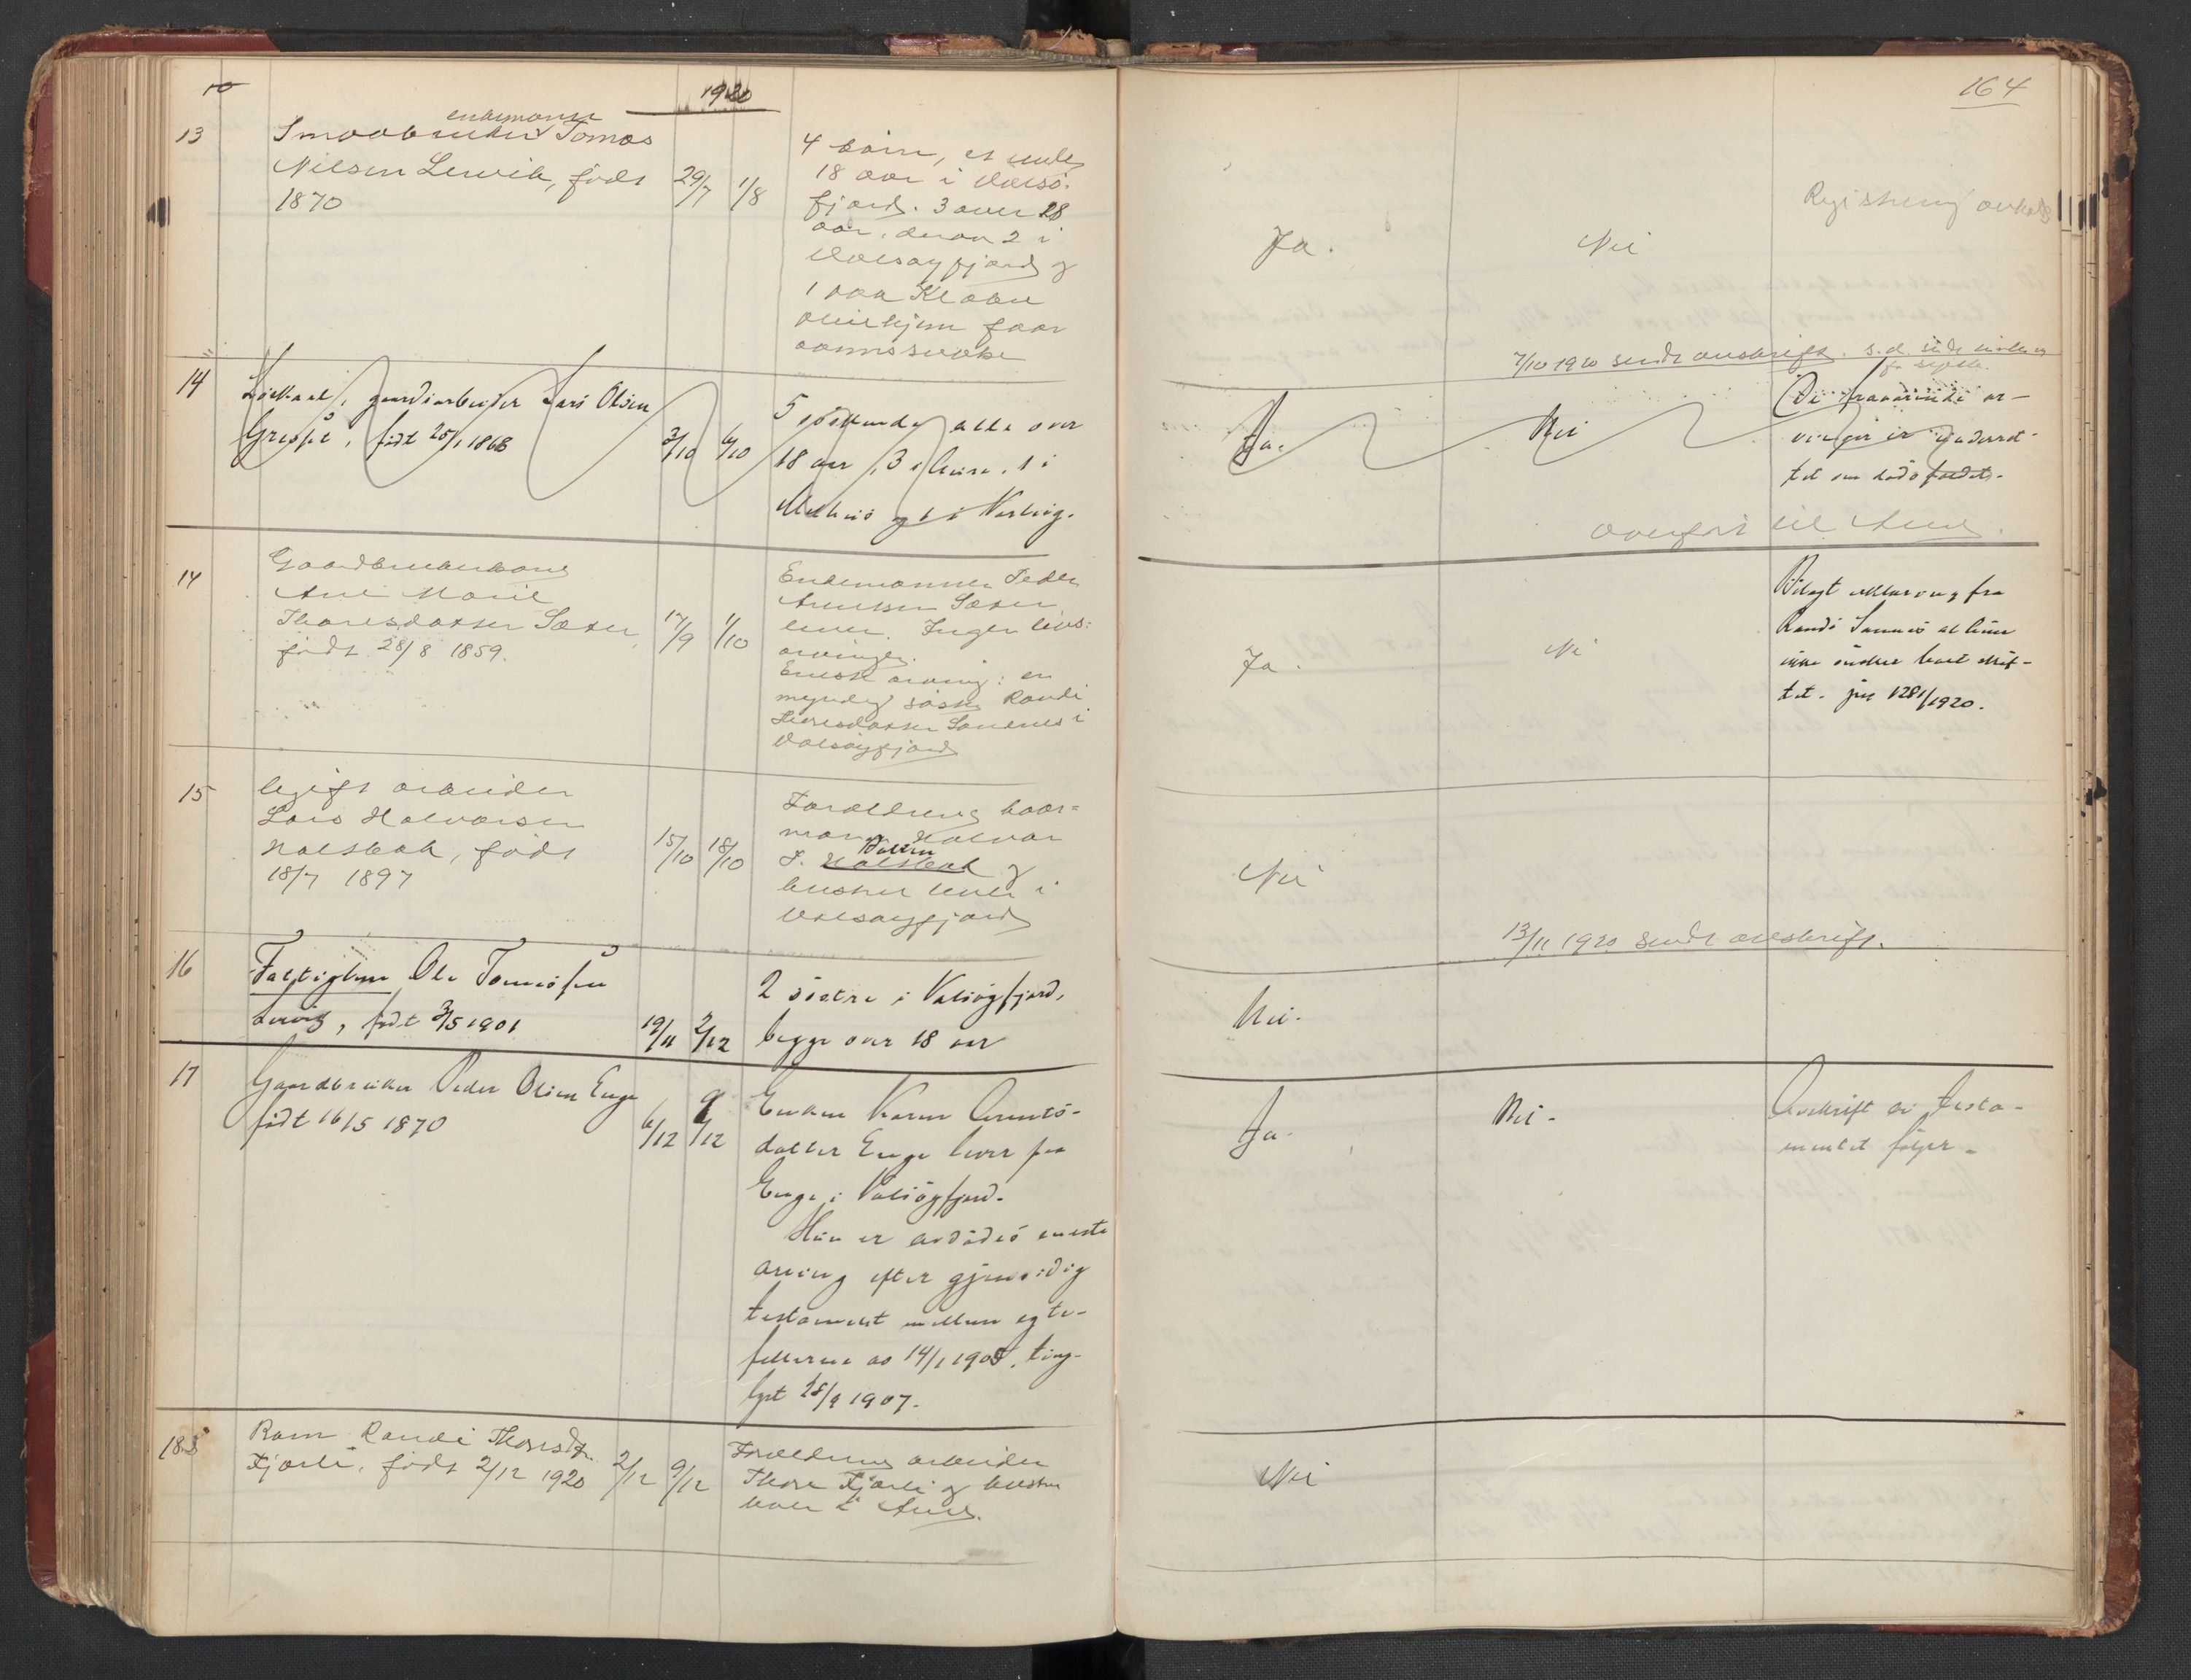 1920
164
13
enkemann
Smaabruker Tomas
Nilsen Lervik, født
1870
29/7
1/8
4 barn, et under
18 aar i Valsø-
fjord. 3 over 18
aar, derav 2 i
Valsøyfjord og
1 paa Klæbu
pleiehjem for
aandssvake
Ja.
Nei
Registrering
7/10 1920 sendt avskrift. s.d.
14
gaardarbeider Lars Olsen
født 25/1 1868
3/10
6/10
5 søskende alle over
18 aar, 3 i
og 1 i
Ja.
Nei
De fraværende ar-
vinger er underret-
tet om dødsfaldet.
Overført til Aure.
14
Gaardbrukerkone
Ane Marie
Thoresdatter Sæter,
født 28/8 1859.
17/9
1/10
Enkemannen Peder
Arntsen Sæter
lever. Ingen livs-
arvinger.
Eneste arving: en
myndig søster Randi
Thoresdatter i
Valsøyfjord
Ja.
Nei
Vilagt erklæring fra
Randi at hun
ikke ønsker boet skif-
tet. jnr 1281/1920.
15
Ugift arbeider
Lars Halvorsen
Halsbak, født
18/7 1897
15/10
18/10
Forældrene baas-
mann Halvor
J. Halsbak og
hustru lever i
Valsøyfjord
Nei
13/11 1920 sendt avskrift.
16
Fattiglem Ole Tomassen
Lervig, født 3/5 1901
19/11
2/12
2 søstre i Valsøyfjord,
begge over 18 aar
Nei.
17
Gaardbruker Peder Olsen Enge
født 16/5 1870
6/12
9/12
Enken Karen Arnts-
datter Enge lever paa
Enge i Valsøyfjord.
Hun er avdødes eneste
arving efter gjensidig
testament mellem egte-
fellerne av 14/1 1905, ting-
lyst 28/9 1907.
Ja.
Nei.
Avskrift av testa-
mentet følger.
18
Barn Randi Thoresdtr.
Fjærli, født 2/12 1920
2/12
9/12
Forældrene arbeider
Thore Fjærli og hustru
lever i Aure.
Nei